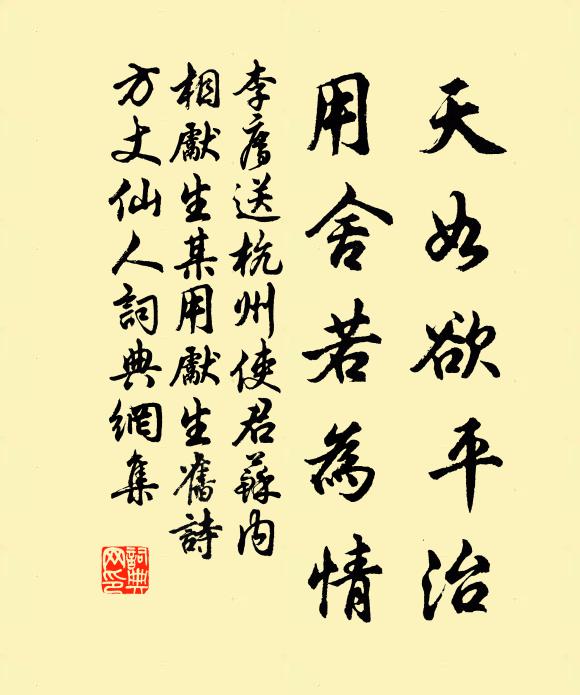 天如欲平治
用舍若為情
李廌送杭州使君蘇内
相獻生某用獻生舊詩
方丈仙人詞典網集
詞典网印